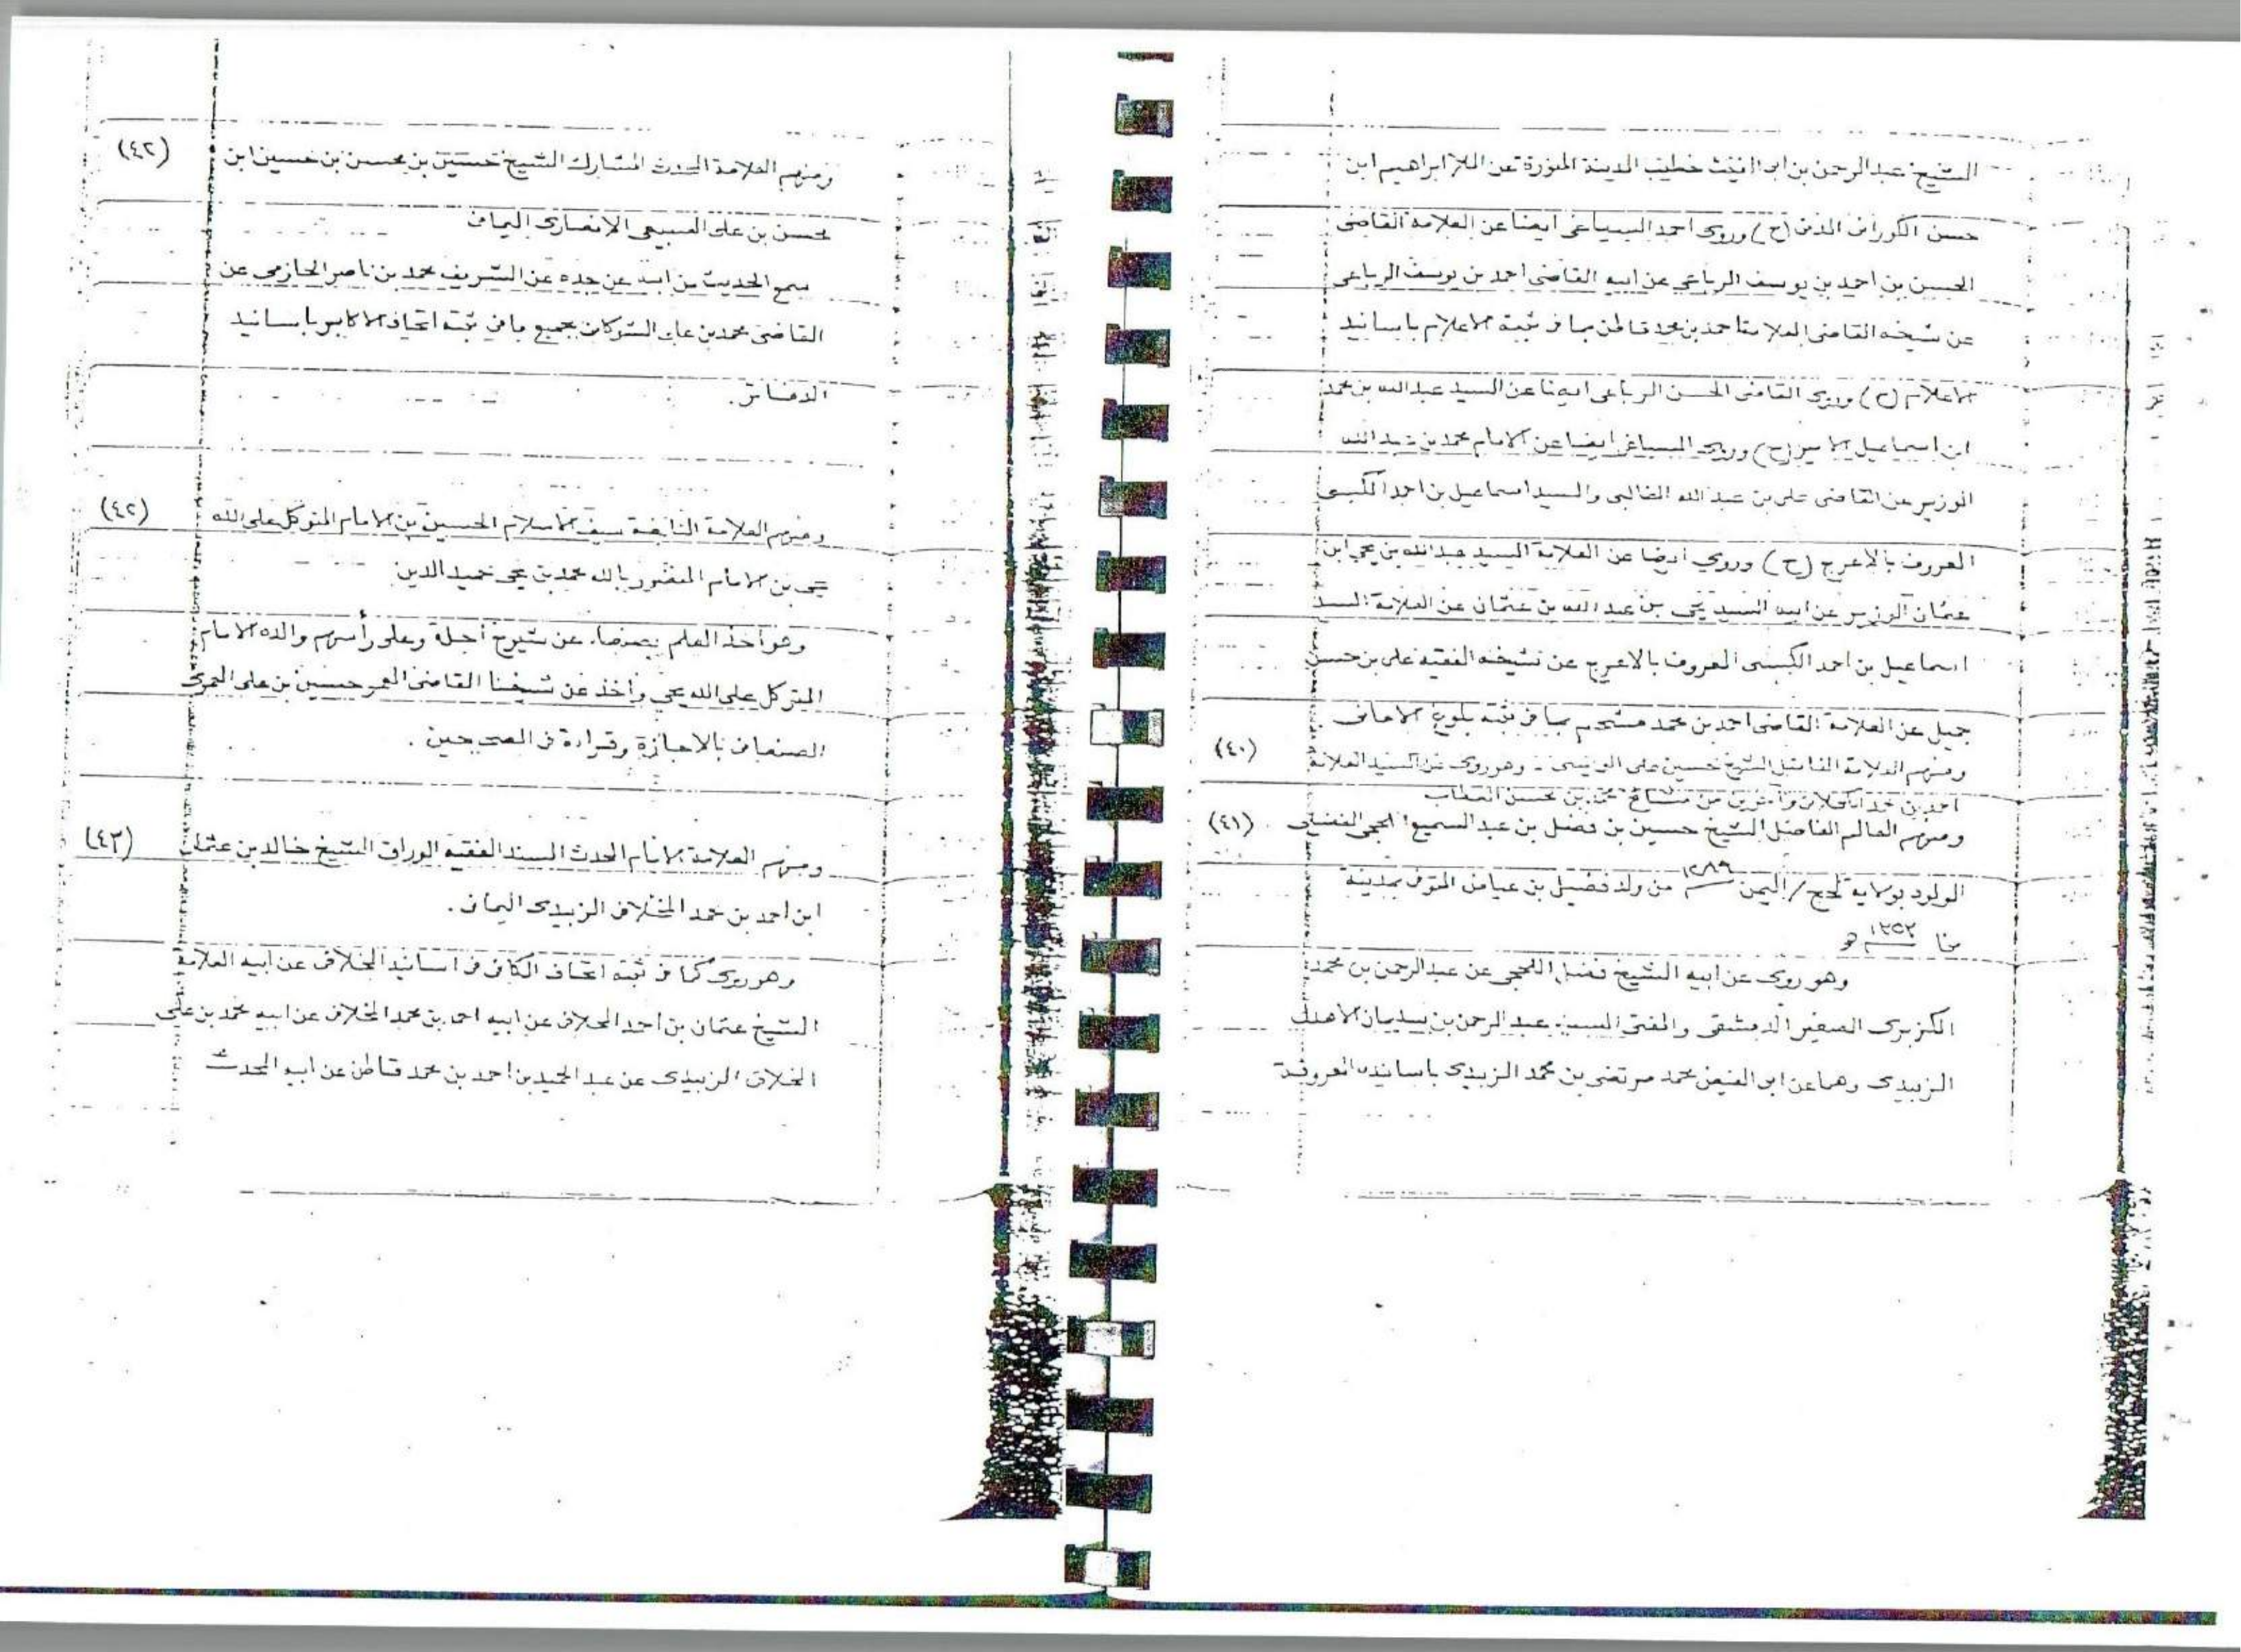 الشيخ عبدالرحمن بن ابى الغيث خطيب المدينة المنورة عن الملا ابراهيم ابن
حسن الكورانى المدنى (ح) وروى احمد السياغى ايضا عن العلامة القاضى
الحسن بن احمد بن يوسف الرباعى عن ابيه القاضى احمد بن يوسف الرباعى
عن شيخه القاضى العلامة احمد بن محمد قاطن بما فى ثبته الاعلام باسانيد
الاعلام (ح) وروى القاضى الحسن الرباعى ايضا عن السيد عبدالله بن محمد
ابن اسماعيل الامير (ح) وروى السياغى ايضا عن الامام محمد بن عبدالله
الوزير عن القاضى على بن عبدالله الغالبى والسيد اسماعيل بن احمد الكبسى
المعروف بالاعرج (ح) وروى ايضا عن العلامة السيد عبدالله بن يحيى ابن
عثمان الوزير عن ابيه السيد يحيى بن عبدالله بن عثمان عن العلامة السيد
اسماعيل بن احمد الكبسى المعروف بالاعرج عن شيخه الفقيه على بن حسن
جميل عن العلامة القاضى احمد بن محمد مشحم بما فى ثبته بلوغ الامانى .
ومنهم العلامة الفاضل الشيخ حسين على - وهو روى عن السيد العلامة (٤٠)
احمد بن من محسن العطاب
ومنهم العالم الفاضل الشيخ حسين بن فضل بن عبدالسميع اللحجى الفضيلى . (٤١)
المولود بولاية لحج / اليمن ١٢٨٩ من ولد فضيل بن عياض المتوفى بمدينة
١٣٥٢ هـ
وهو روى عن ابيه الشيخ فضل اللحجى عن عبدالرحمن بن محمد
الكزبرى الصغير الدمشقى والمفتى السيد عبدالرحمن بن سليمان الاهدل
الزبيدى وهما عن ابى الفيض محمد مرتضى بن محمد الزبيدى باسانيده المعروفة
ومنهم العلامة المحدث المشارك الشيخ حسين بن محسن بن حسين ابن (٤٢)
محسن بن على السبيعى الانصارى اليمانى
سمع الحديث من ابيه عن جده عن الشريف محمد بن ناصر الحازمى عن
القاضى محمد بن على الشوكانى بجميع ما فى ثبته اتحاف الاكابر باسانيد
الدفاتر .
ومنهم العلامة النابغة سيف الاسلام الحسين بن الامام المتوكل على الله (٤٢)
يحيى بن الامام المنصور بالله محمد بن يحيى حميد الدين
وهو اخذ العلم بصنعاء عن شيوخ أجلة وعلى رأسهم والده الامام
المتوكل على الله يحيى وأخذ عن شيخنا القاضى المعمر حسين بن على العمرى
الصنعانى بالاجازة وقراءة فى الصحيحين .
ومنهم العلامة الامام المحدث المسند الفقيه الوراق الشيخ خالد بن عثمان (٤٣)
ابن احمد بن محمد المخلافى الزبيدى اليمانى .
وهو روى كما فى ثبته اتحاف الكافى فى اسانيد المخلافى عن ابيه العلامة
الشيخ عثمان بن احمد المخلافى عن ابيه احمد بن محمد المخلافى عن ابيه محمد بن على
المخلافى الزبيدى عن عبد الحميد بن احمد بن محمد قاطن عن ابيه المحدث